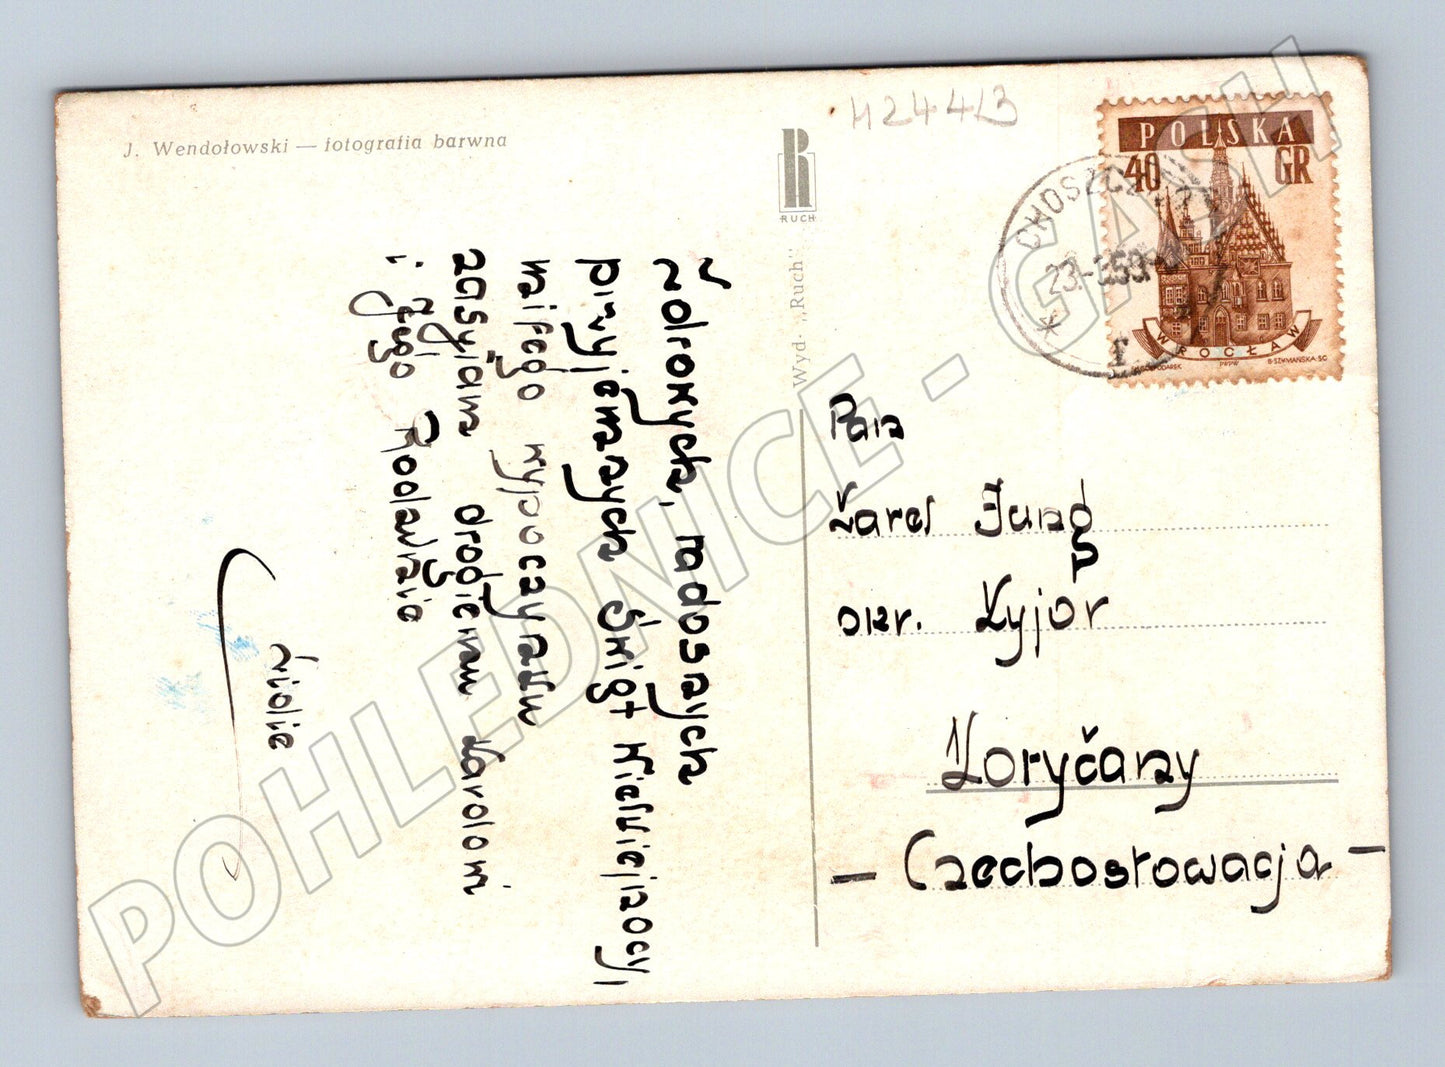 J. Wendołowski — fotografia barwna
RUCH
H24413
POLSKA
40 GR
WROCŁAW
B·SZYMAŃSKA·SC
PWPW
CHOSZCZ
23.-3.59
Wyd· „Ruch”
Zdrowych, radosnych
przyjemnych Świąt Wielkiejnocy,
miłego wypoczynku
zasyłam drogiemu Karolowi
i jego Rodzinie
Pan
Karel Jung
okr. Kyjov
Koryčany
— Czechosłowacja —
POHLEDNICE - GASH